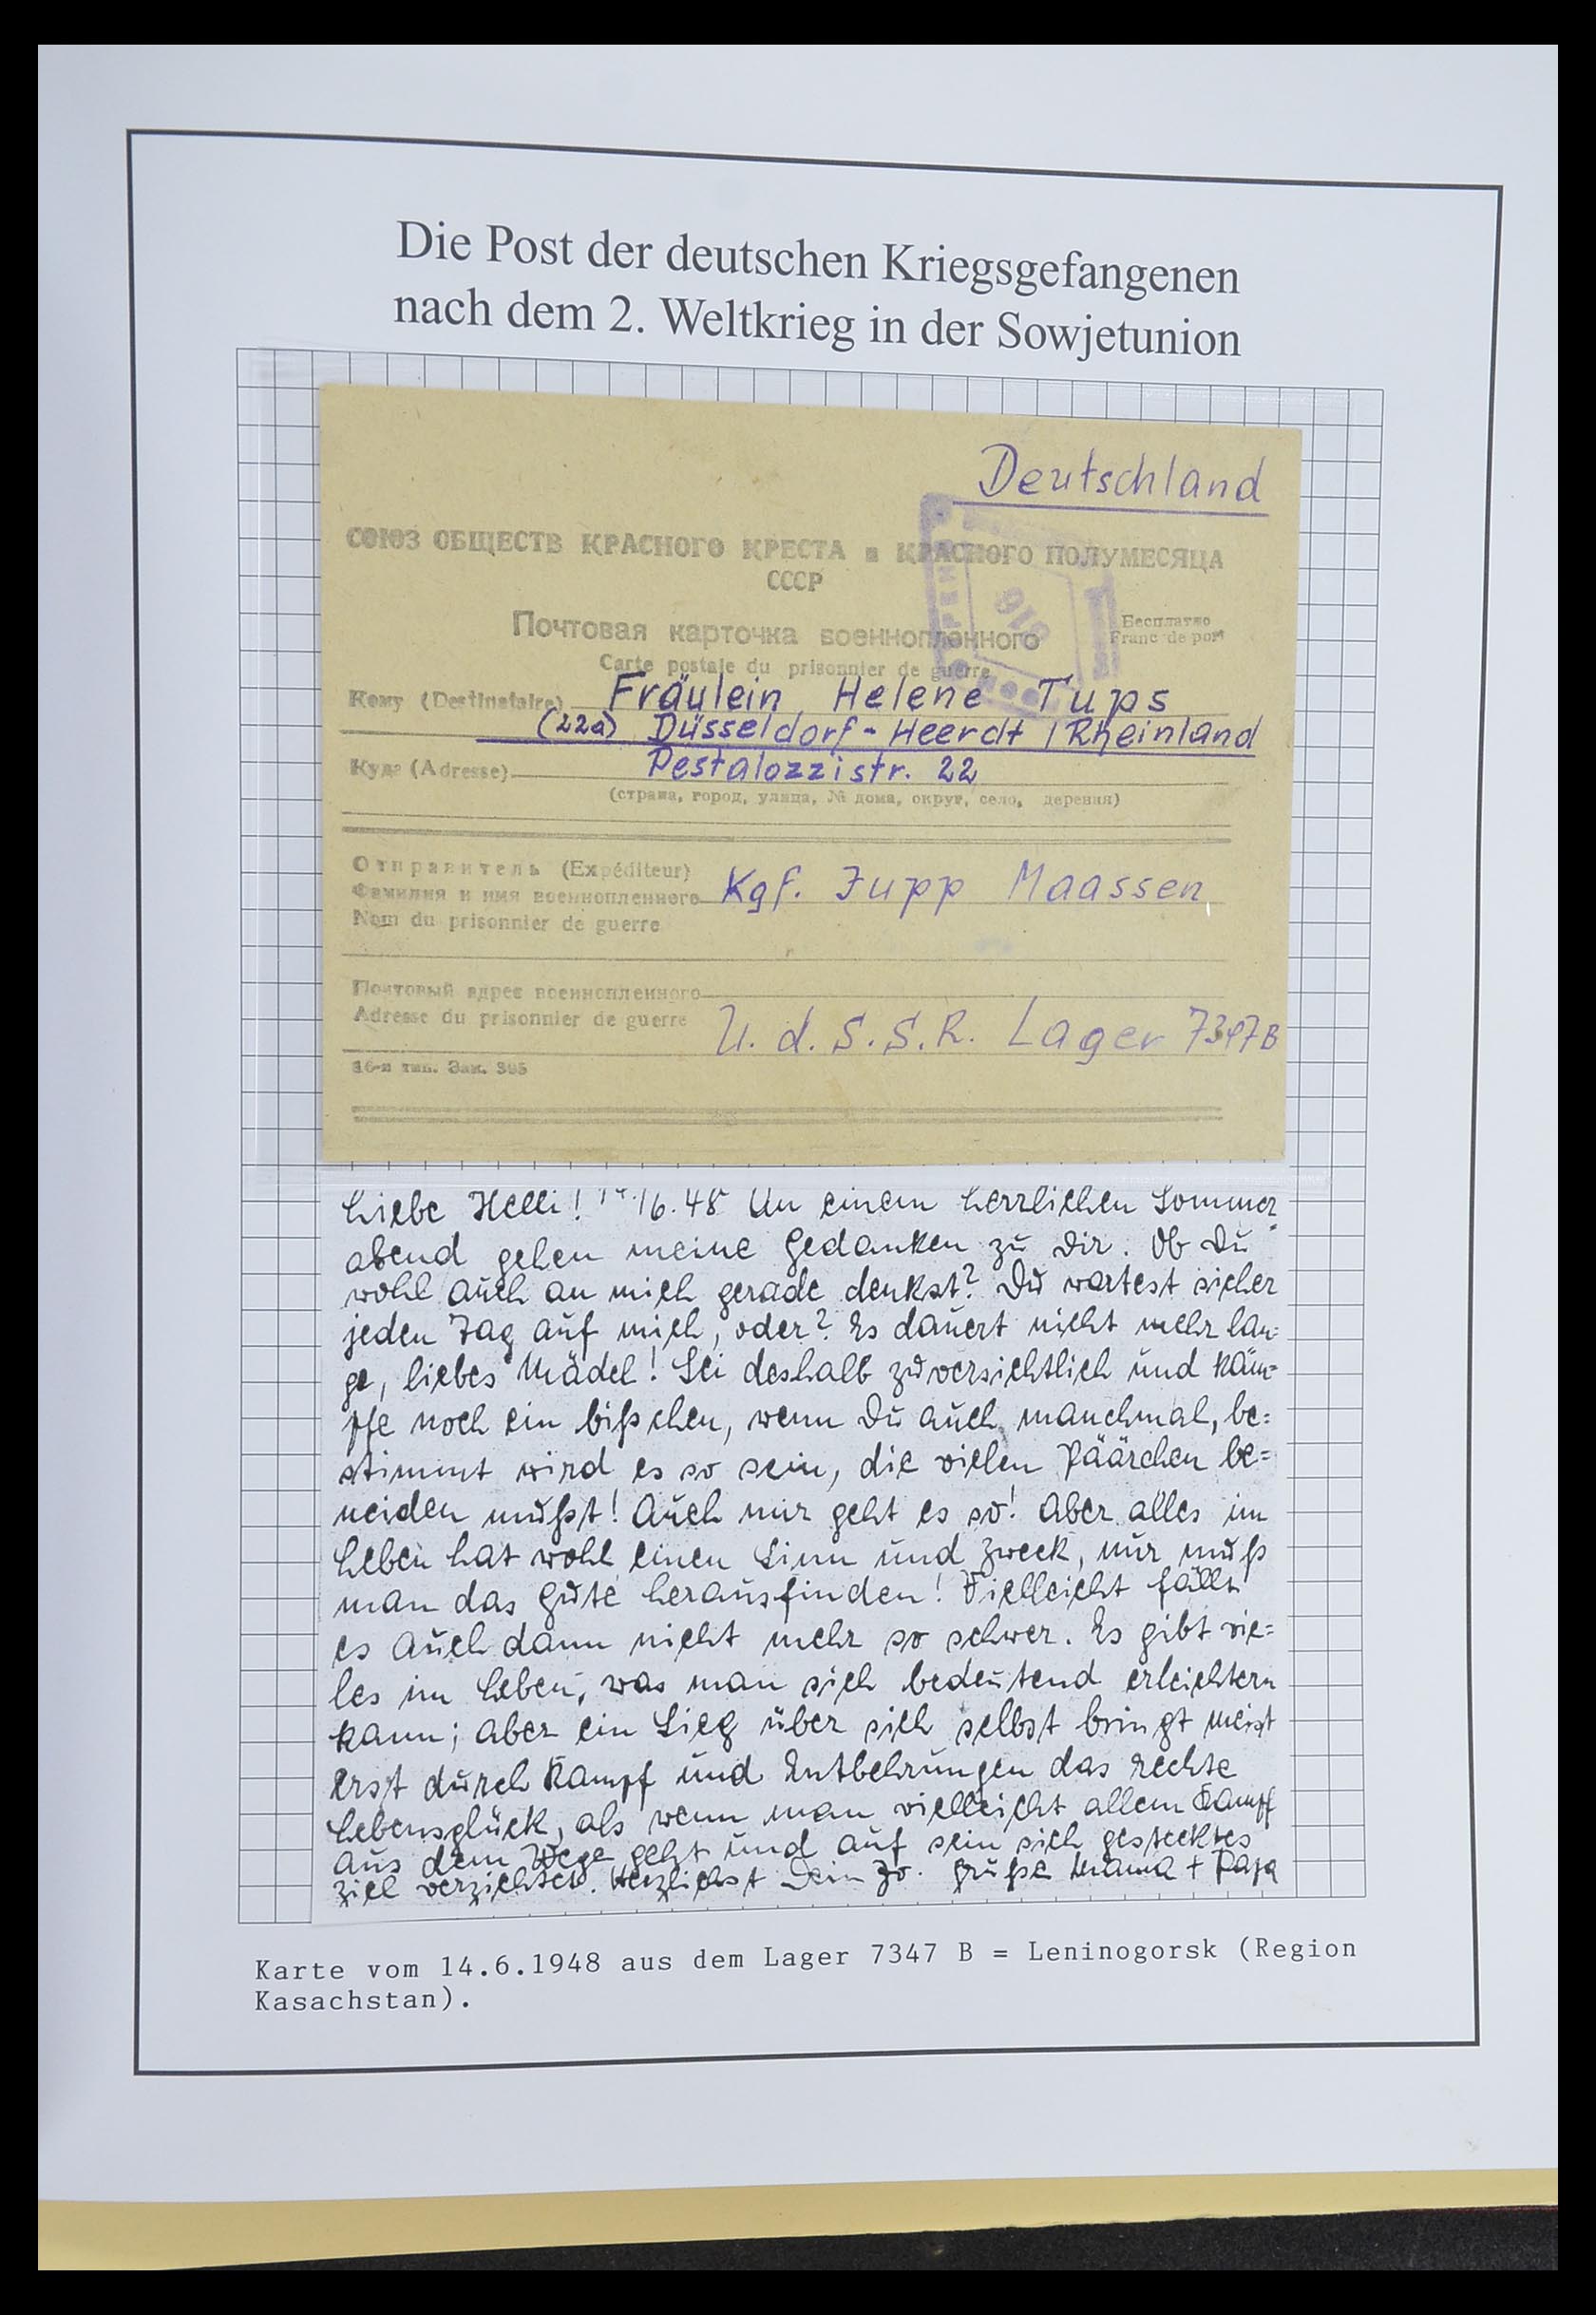 Die Post der deutschen Kriegsgefangenen
nach dem 2. Weltkrieg in der Sowjetunion
Deutschland
СОЮЗ ОБЩЕСТВ КРАСНОГО КРЕСТА и КРАСНОГО ПОЛУМЕСЯЦА
СССР
Почтовая карточка военнопленного
Бесплатно
Franc de port
Carte postale du prisonnier de guerre
Кому (Destinataire) Fräulein Helene Tups
(22a) Düsseldorf-Heerdt / Rheinland
Куда (Adresse) Pestalozzistr. 22
(страна, город, улица, № дома, округ, село, деревня)
Отправитель (Expéditeur)
Фамилия и имя военнопленного Kgf. Jupp Maassen
Nom du prisonnier de guerre
Почтовый адрес военнопленного
Adresse du prisonnier de guerre U.d.S.S.R. Lager 7347B
16-я тип. Зак. 395
Liebe Helli! 14./6.48 An einem herrlichen Sommer
abend gehen meine Gedanken zu Dir. Ob Du
wohl auch an mich gerade denkst? Du wartest sicher
jeden Tag auf mich, oder? Es dauert nicht mehr lan-
ge, liebes Mädel! Sei deshalb zuversichtlich und käm=
pfe noch ein bißchen, wenn Du auch manchmal, be=
stimmt wird es so sein, die vielen Päärchen be=
neiden mußt! Auch mir geht es so! Aber alles im
Leben hat wohl einen Sinn und Zweck, nur muß
man das Gute herausfinden! Vielleicht fällt
es auch dann nicht mehr so schwer. Es gibt vie=
les im Leben, was man sich bedeutend erleichtern
kann; aber ein Sieg über sich selbst bringt meist
erst durch Kampf und Entbehrungen das rechte
Lebensglück, als wenn man vielleicht allem Kampf
aus dem Wege geht und auf sein sich gestecktes
Ziel verzichtet. Herzlichst Dein Jo. Grüße Mama + Papa
Karte vom 14.6.1948 aus dem Lager 7347 B = Leninogorsk (Region
Kasachstan).